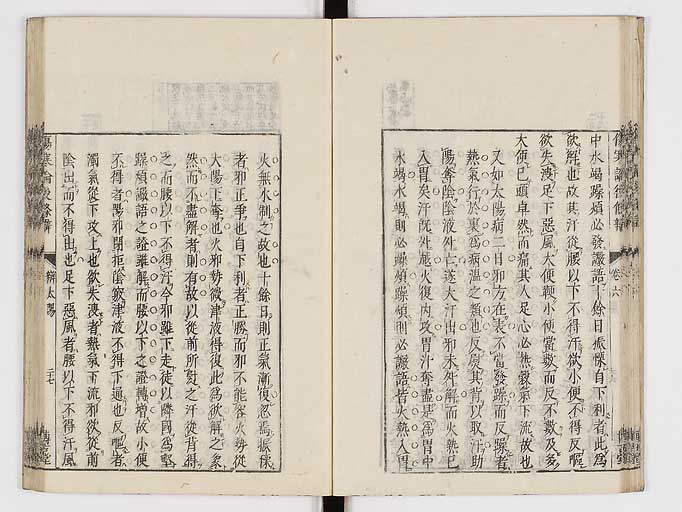 中水竭躁煩必發讝語十餘日振慄自下利者此爲
欲解也故其汗從腰以下不得汗欲小便不得反嘔
欲失溲足下惡風大便鞕小便當數而反不數及多
大便已頭卓然而痛其人足心必熱穀氣下流故也
又如太陽病二日邪方在表不當發躁而反躁者
熱氣行於裏爲病溫之類也反熨其背以取汗助
陽奪陰陰液外亡遂大汗出邪未外解而火熱已
入胃矣汗旣外越火復內攻胃汁奪盡是爲胃中
水竭水竭則必躁煩躁煩則必讝語皆火熱入胃
火無水制之故也十餘日則正氣漸復忽焉振慄
者邪正爭也自下利者正勝而邪不能容火勢從
大陽下奪也火邪勢微津液得復此爲欲解之象
然而不盡解者則有故以從前所取之汗從背得
之而腰以下不得汗今邪雖下走徒以隣國爲壑
躁煩讝語之證雖解而腰以下之證轉增故小便
不得者陽邪閉拒陰竅津液不得下通也反嘔者
濁氣從下攻上也欲失溲者熱氣下流邪欲從前
陰出而不得出也足下惡風者腰以下不得汗風
辨太陽
二十七
卷六